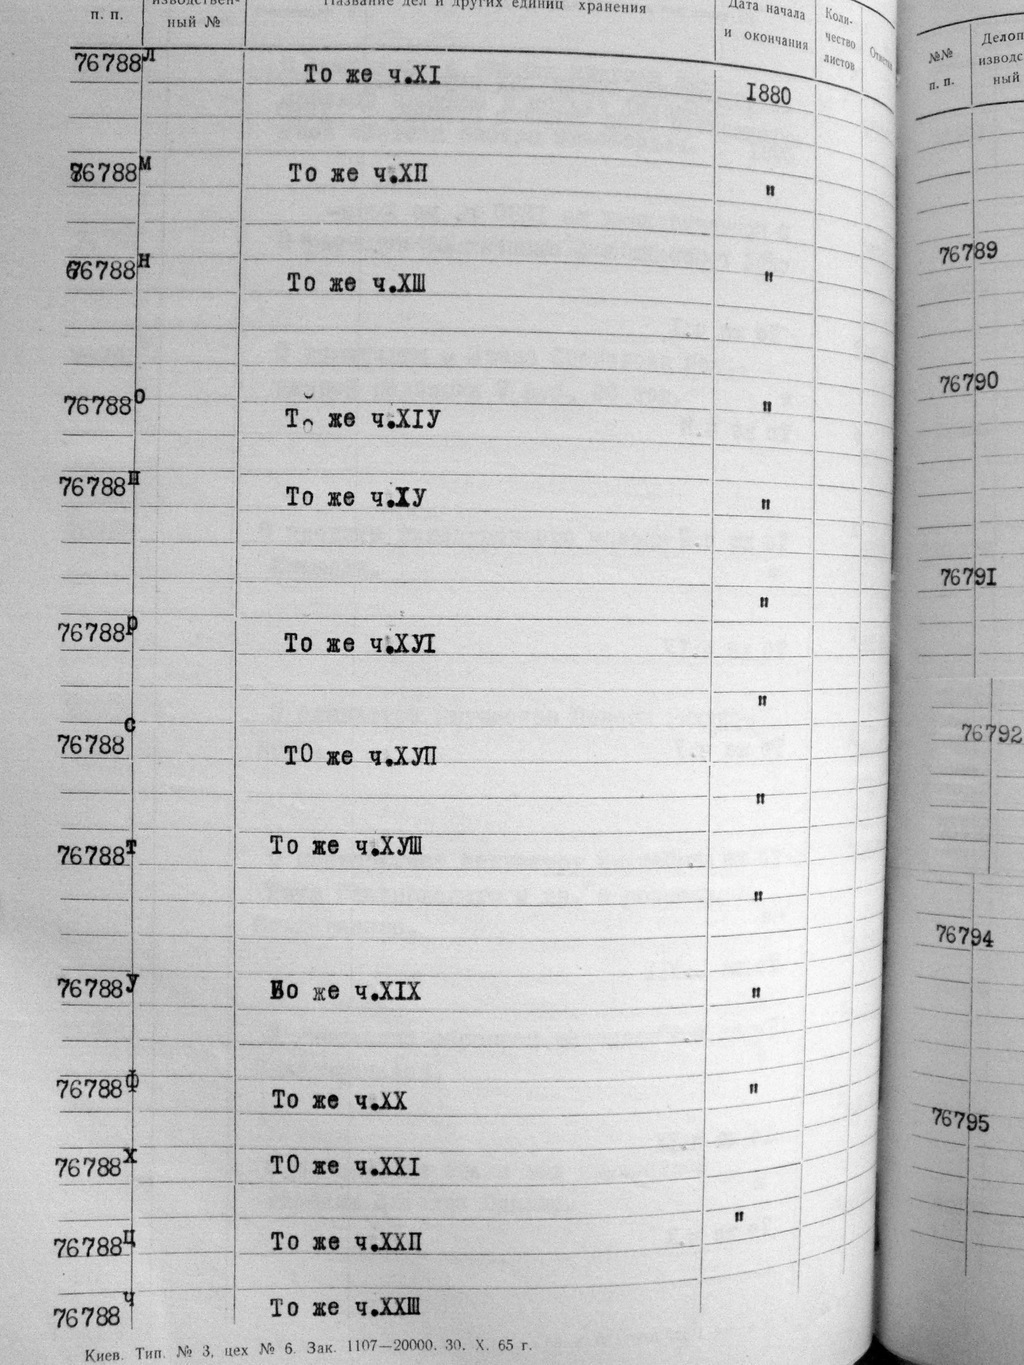 п. п.
изводствен-
ный №
Название дел и других единиц хранения
Дата начала
и окончания
Коли-
чество
листов
Отметка
76788л То же ч.XI 1880
76788м То же ч.ХП "
76788н То же ч.ХШ "
76788о То же ч.ХIУ "
76788п То же ч.ХУ "
"
76788р То же ч.ХУI
"
76788с ТО же ч.ХУП
"
76788т То же ч.ХУШ
"
76788у То же ч.XIX "
76788ф То же ч.XX "
76788х ТО же ч.XXI
"
76788ц То же ч.ХХП
76788ч То же ч.ХХШ
Киев. Тип. № 3, цех № 6. Зак. 1107—20000. 30. X. 65 г.
№№
п. п.
Делоп
изводс
ный
76789
76790
76791
76792
76794
76795